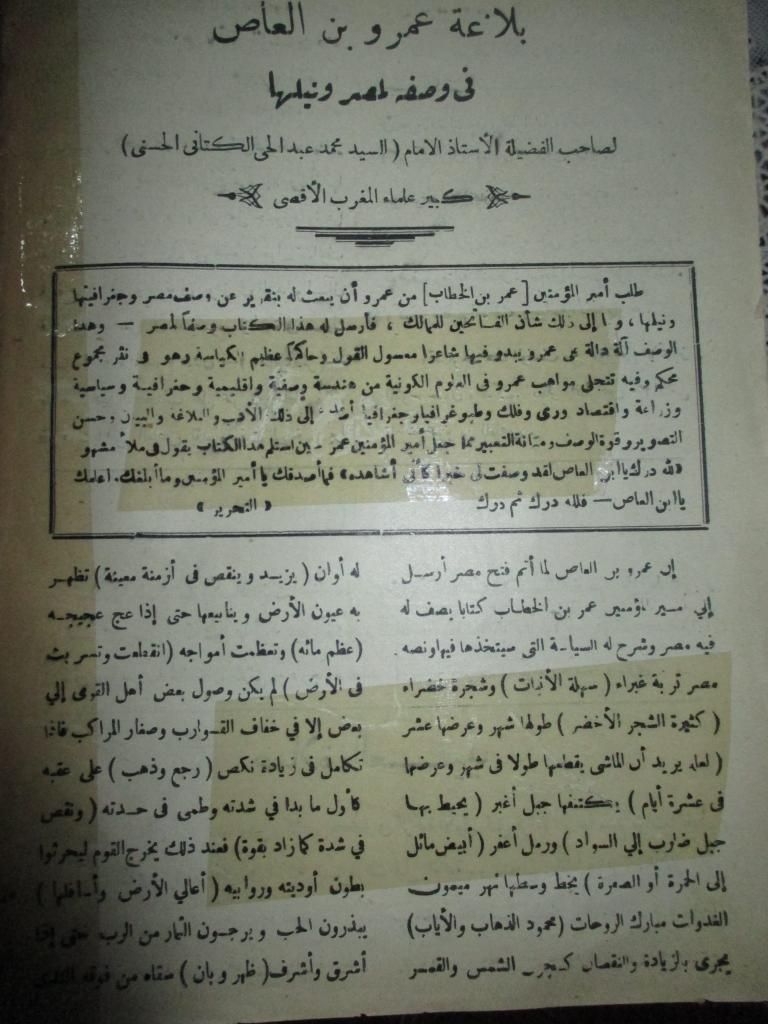 بلاغة عمرو بن العاص
فى وصفه لمصر ونيلها
لصاحب الفضيلة الأستاذ الامام ( السيد محمد عبد الحى الكتانى الحسنى )
كبير علماء المغرب الأقصى
طلب أمير المؤمنين [ عمر بن الخطاب ] من عمرو أن يبعث له بتقرير عن وصف مصر وجغرافيتها
ونيلها ، و ا إلى ذلك شأن الفاتحين للممالك ، فأرسل له هذا الكتاب وصفاً لمصر — وهذا
الوصف آلة دالة على عمرو يبدو فيها شاعرا معسول القول وحاكما عظيم الكياسة وهو فى نقر مجموع
محكم وفيه تتجلى مواهب عمرو فى العلوم الكونية من هندسة وصفية واقليمية وجغرافية وسياسية
وزراعة واقتصاد ورى وفلك وطبوغرافيا وجغرافيا إلى ذلك الأدب والبلاغة والبيان وحسن
التصوير وقوة الوصف ومتانة التعبير مما جعل أمير المؤمنين عمر حين استلم هذا الكتاب يقول فى ملأ مشهو
« لله درك يا ابن العاص لقد وصفت لى خبرا كأنى أشاهده » فما أصدقك يا أمير المؤمنين وما أبلغك.
يا ابن العاص — فلله درك ثم درك « التحرير »
إن عمرو بن العاص لما أتم فتح مصر أرسل
إلي أمير المؤمنين عمر بن الخطاب كتابا يصف له
فيه مصر وشرح له السياسة التى سيتخذها فيها ونصه
مصر تربة غبراء ( سهلة الأنبات ) وشجرة خضراء
( كثيرة الشجر الأخضر ) طولها شهر وعرضها عشر
( لعله يريد أن الماشى يقطعها طولا فى شهر وعرضها
فى عشرة أيام ) يكتنفها جبل أغبر ( يحيط بها
جبل ضارب إلي السواد ) ورمل أعفر ( أبيض مائل
إلى الحمرة أو الصفرة ) يخط وسطها نهر ميمون
الغدوات مبارك الروحات ( محمود الذهاب والأياب )
يجرى بالزيادة والنقصان كجرى الشمس والقمر
له أوان ( يزيد وينقص فى أزمنة معينة ) تظهر
به عيون الأرض وينابيعها حتى إذا عج عجيجه
( عظم مائه ) وتعظمت أمواجه ( انقطعت وتسربت
فى الأرض ) لم يكن وصول بعض أهل القرى إلي
بعض إلا في خفاف القوارب وصغار المراكب فاذا
تكامل فى زيادة نكص ( رجع وذهب ) على عقبه
كأول ما بدا في شدته وطمى فى حدته ( ونقص
في شدة كما زاد بقوة ) فعند ذلك يخرج القوم ليحرثوا
بطون أوديته وروابيه ( أعالي الأرض وأسافلها )
يبذرون الحب ويرجون الثمار من الرب حتى إذا
أشرق وأشرف ( ظهر وبان ) سقاه من فوقه الندى